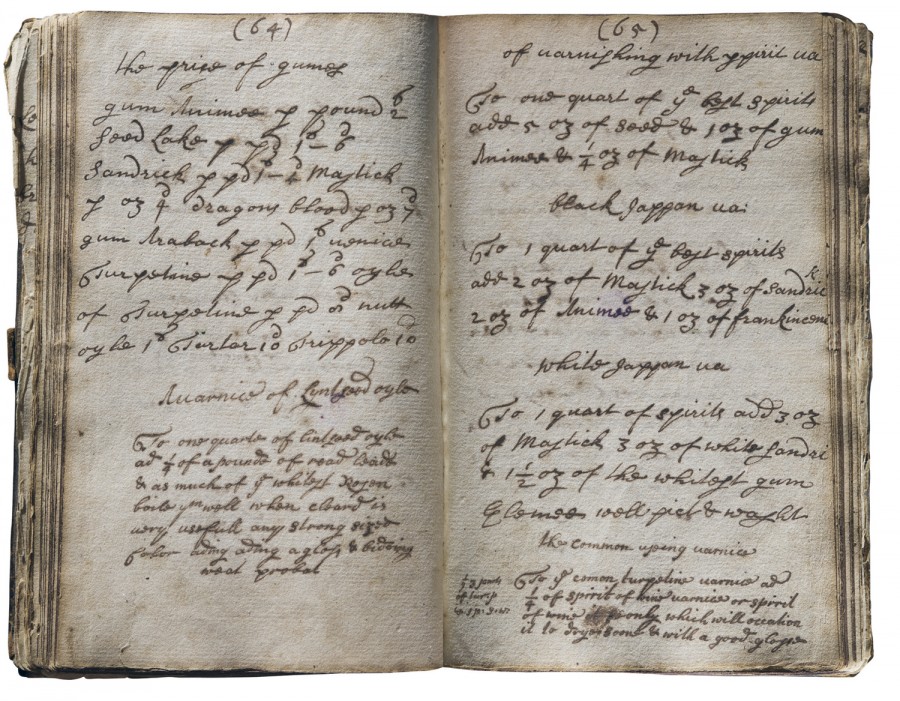 (64)
the prise of gumes
gum Animee p pound 6
Seed Lake p pd 1s-6d
Sandrick p pd 1s-2d Mastick
p oz 4d dragons blood p oz 7d
gum Araback p pd 1s 6d venice
Turpetine p pd 1s-6d oyle
of Turpetine p pd 8d nutt
oyle 1s Tartar 10d Trippola 10d
A uarnice of Lyntseed oyle
To one quarte of lintseed oyle
ad 1/4 of a pounde of read Leade
& as much of ye whitest Rosen
boile ym well when cleard is
very usefull any strong sizee
Color ading ading a gloss & bidding
weat probat
(65)
of uarnishing with spirit ua
To one quart of ye best spirits
add 5 oz of seed & 1 oz of gum
Animee & 1/4 oz of Mastick
black Jappan ua:
To 1 quart of ye best spirits
add 2 oz of Mastick 3 oz of Sandrick
2 oz of Animee & 1 oz of frankincens
white Jappan ua
To 1 quart of spirits add 3 oz
of Mastick 3 oz of white Sandri
& 1 1/2 oz of the whitest gum
Elemee well pict & washt
the common using uarnice
To ye comon turpetine uarnice ad
1/4 of spirit of wine uarnice or spirit
of wine only which will occation
it to dry & with a good glosse